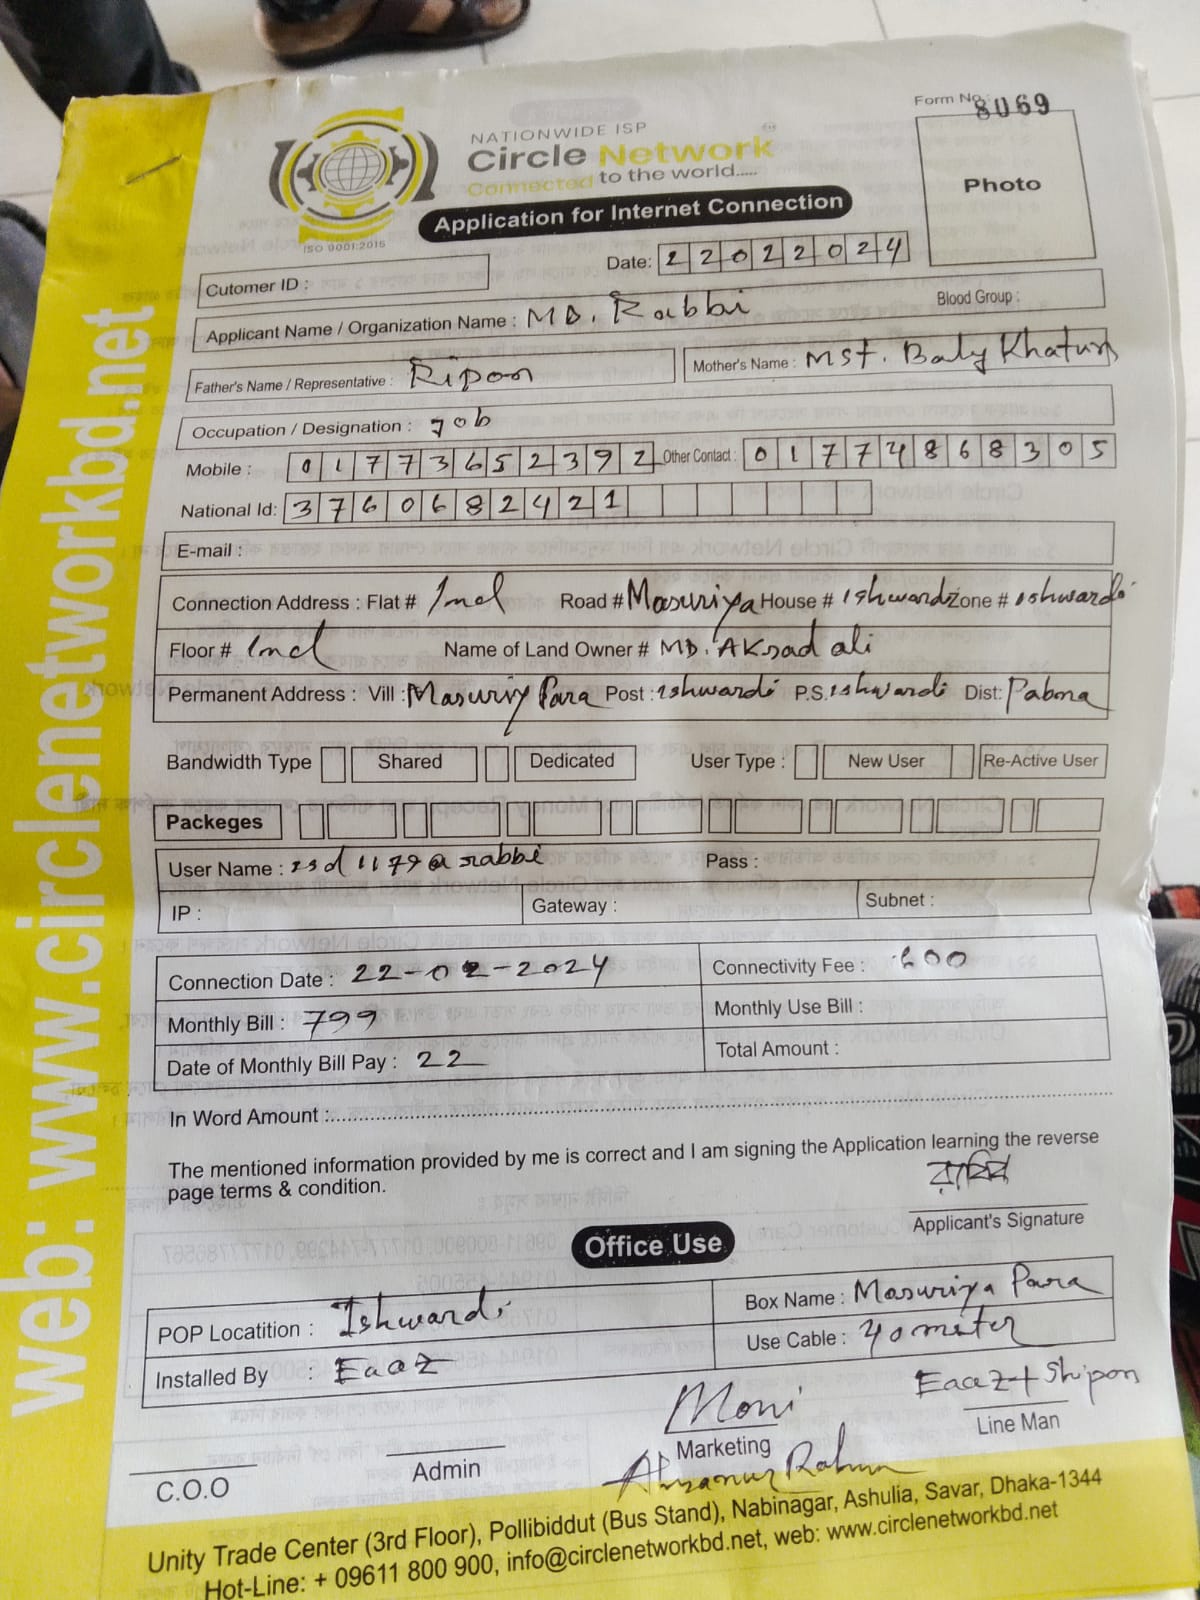 Form No.: 8069
NATIONWIDE ISP
Circle Network
Connected to the world.....
ISO 9001:2015
Application for Internet Connection
Photo
Date: 22022024
Cutomer ID :
Applicant Name / Organization Name : MD. Rabbi Blood Group :
Father's Name / Representative : Ripon Mother's Name : Mst. Baly Khatun
Occupation / Designation : Job
Mobile : 01773652392 Other Contact : 01774868305
National Id: 3760682421
E-mail :
Connection Address : Flat # Road # Masuriya House # Ishwardi Zone # Ishwardi
Floor # Name of Land Owner # MD. AKsad ali
Permanent Address : Vill : Masuriy Para Post : Ishwardi P.S. Ishwardi Dist: Pabna
Bandwidth Type Shared Dedicated User Type : New User Re-Active User
Packeges
User Name : isd1179@rabbi Pass :
IP : Gateway : Subnet :
Connection Date : 22-02-2024 Connectivity Fee : 600
Monthly Bill : 799 Monthly Use Bill :
Date of Monthly Bill Pay : 22 Total Amount :
In Word Amount :
The mentioned information provided by me is correct and I am signing the Application learning the reverse
page terms & condition.
রাব্বি
Applicant's Signature
Office Use
POP Locatition : Ishwardi Box Name : Masuriya Para
Installed By : Eaaz Use Cable : 40 meter
Moni Eaaz + Shipon
C.O.O Admin Marketing Line Man
Ahsanur Rahman
Unity Trade Center (3rd Floor), Pollibiddut (Bus Stand), Nabinagar, Ashulia, Savar, Dhaka-1344
Hot-Line: + 09611 800 900, info@circlenetworkbd.net, web: www.circlenetworkbd.net
web: www.circlenetworkbd.net